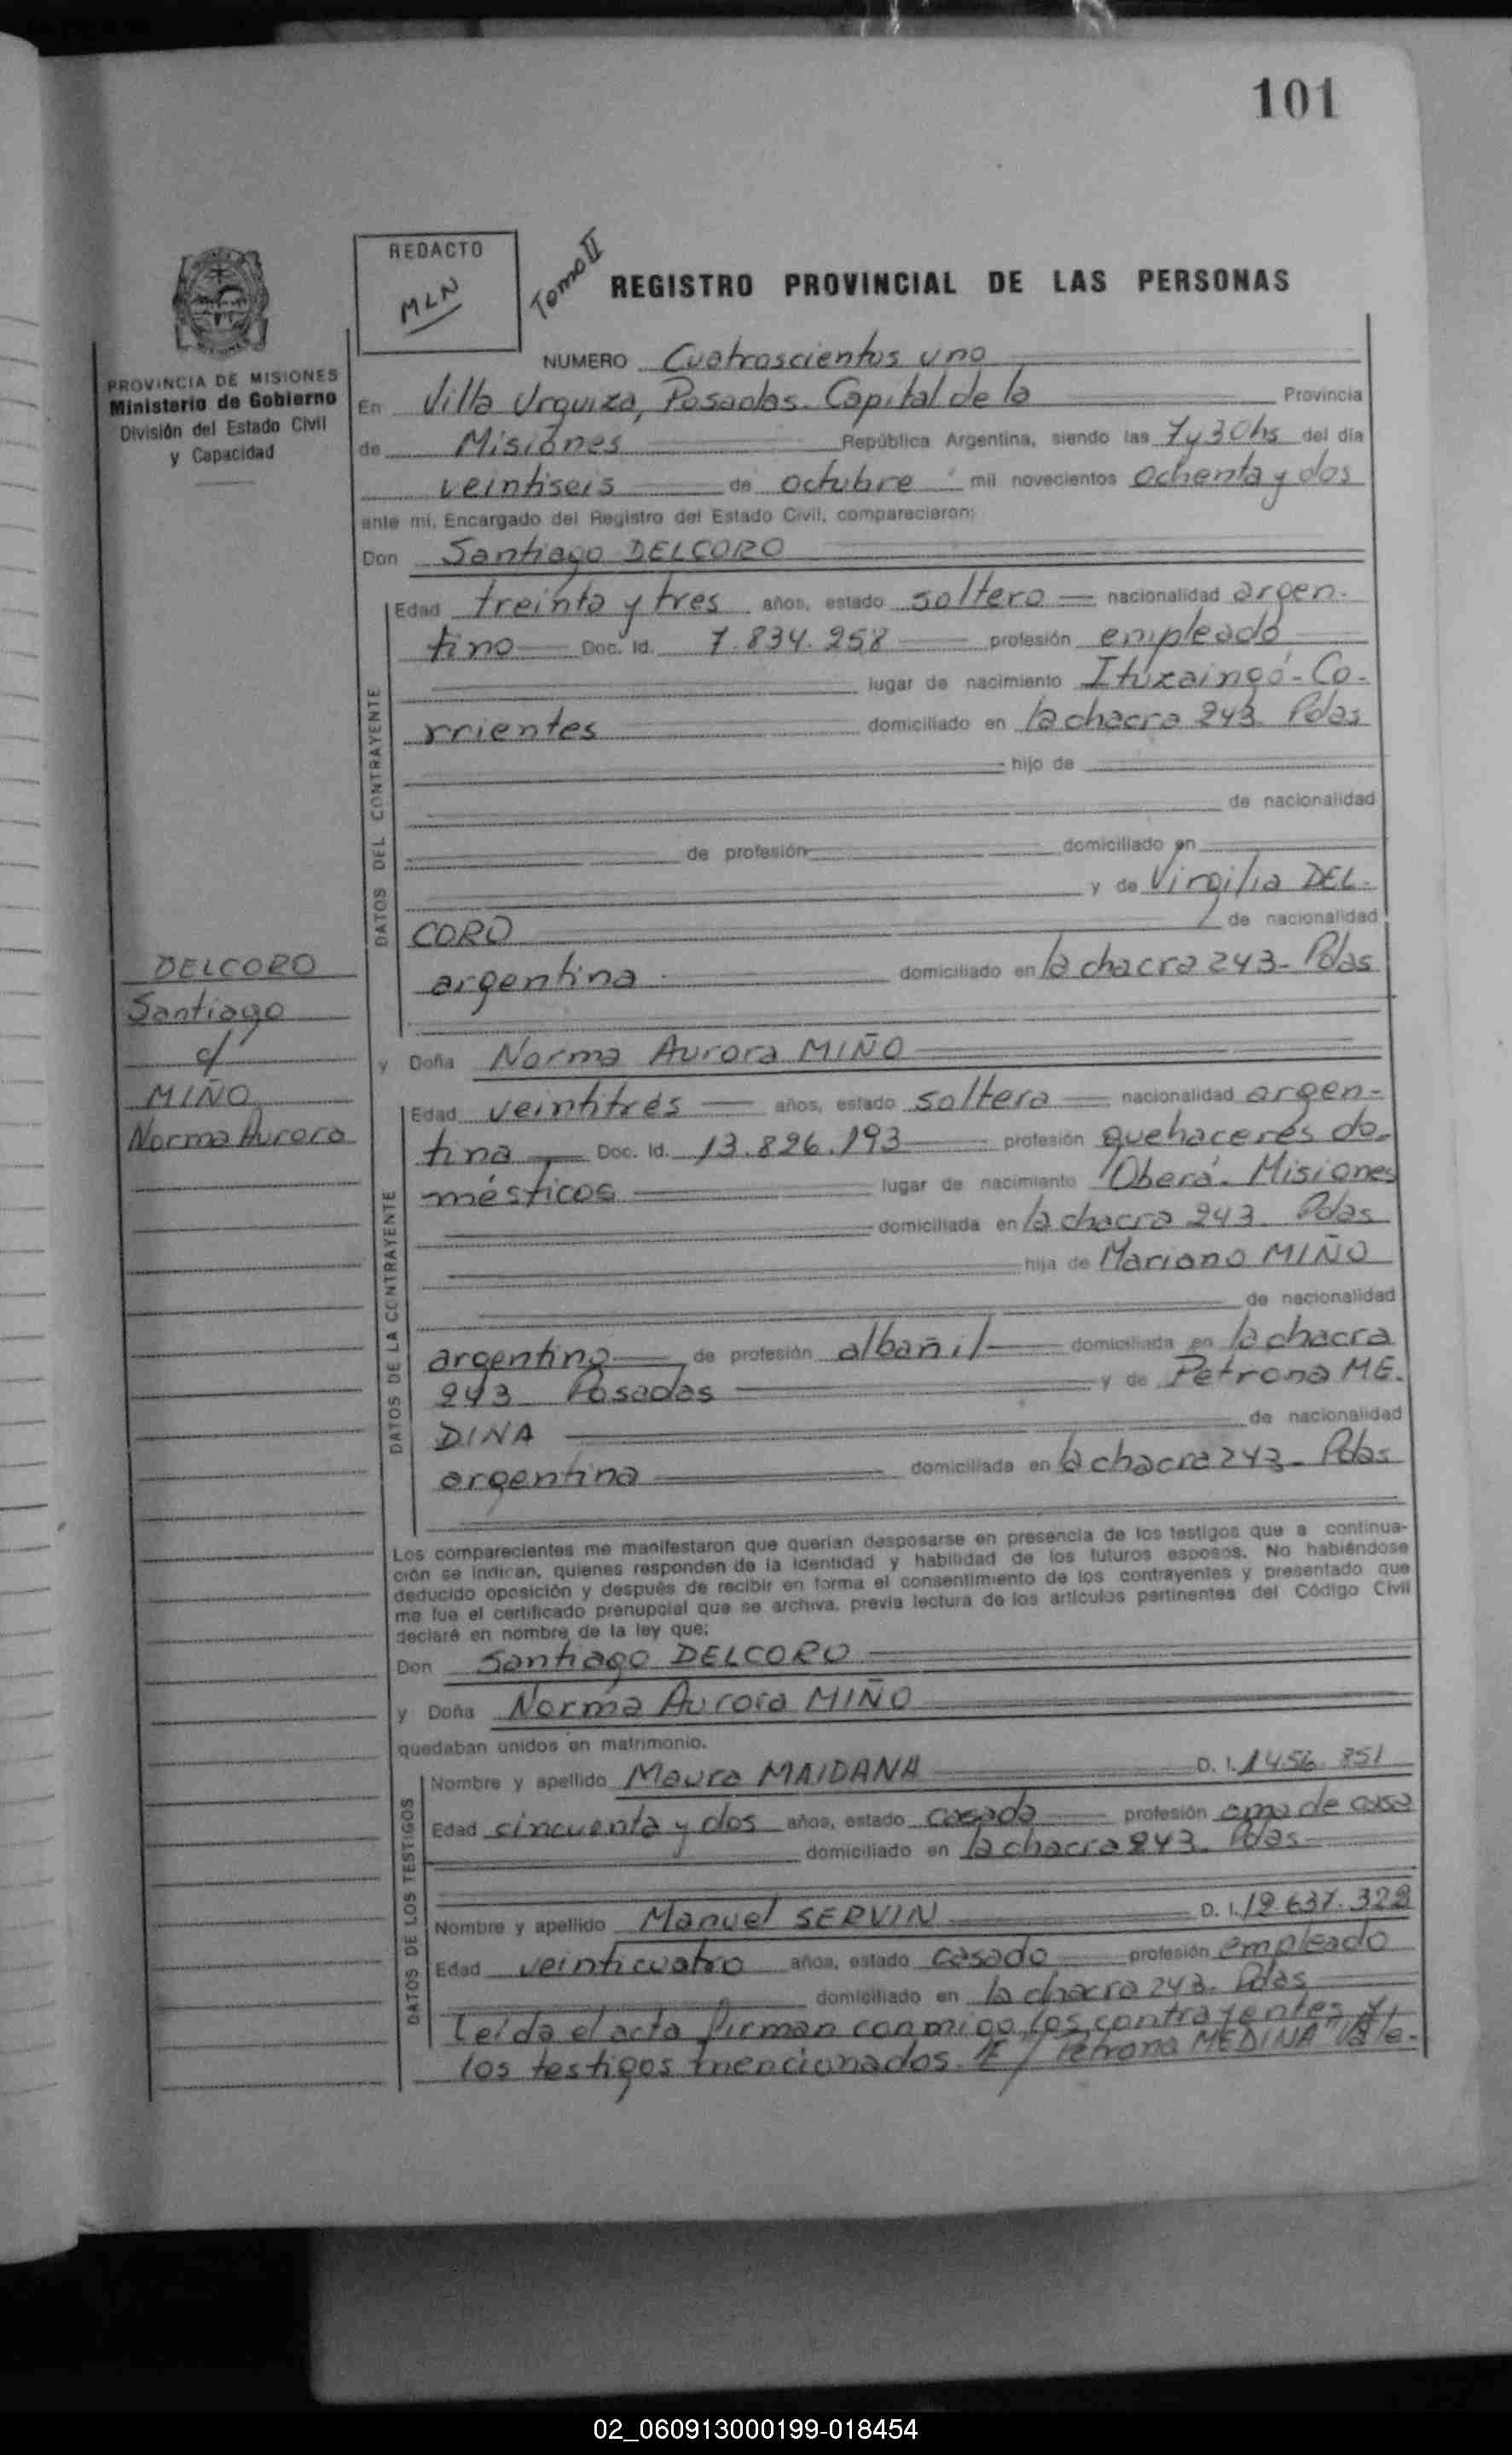 101
REDACTO
MLN
Tomo II
REGISTRO PROVINCIAL DE LAS PERSONAS
PROVINCIA DE MISIONES
Ministerio de Gobierno
División del Estado Civil
y Capacidad
NUMERO Cuatroscientos uno
En Villa Urquiza, Posadas. Capital de la Provincia
de Misiones República Argentina, siendo las 7y30hs del día
veintiseis de octubre mil novecientos ochenta y dos
ante mí, Encargado del Registro del Estado Civil, comparecieron:
Don Santiago DELCORO
DATOS DEL CONTRAYENTE
Edad treinta y tres años, estado soltero nacionalidad argen-
tino Doc. Id. 7.834.958 profesión empleado
lugar de nacimiento Ituzaingó-Co-
rrientes domiciliado en la chacra 243 Pdas
hijo de
de nacionalidad
de profesión domiciliado en
y de Virgilia DEL-
CORO de nacionalidad
argentina domiciliado en la chacra 243- Pdas
DELCORO
Santiago
c/
MIÑO
Norma Aurora
y Doña Norma Aurora MIÑO
DATOS DE LA CONTRAYENTE
Edad veintitrés años, estado soltera nacionalidad argen-
tina Doc. Id. 13.826.193 profesión quehaceres do-
mésticos lugar de nacimiento Oberá-Misiones
domiciliada en la chacra 243 Pdas
hija de Mariano MIÑO
de nacionalidad
argentino de profesión albañil domiciliada en la chacra
243 Posadas y de Petrona ME-
DINA de nacionalidad
argentina domiciliada en la chacra 243- Pdas
Los comparecientes me manifestaron que querían desposarse en presencia de los testigos que a continua-
ción se indican, quienes responden de la identidad y habilidad de los futuros esposos. No habiéndose
deducido oposición y después de recibir en forma el consentimiento de los contrayentes y presentado que
me fue el certificado prenupcial que se archiva, previa lectura de los artículos pertinentes del Código Civil
declaré en nombre de la ley que:
Don Santiago DELCORO
y Doña Norma Aurora MIÑO
quedaban unidos en matrimonio.
DATOS DE LOS TESTIGOS
Nombre y apellido Maura MAIDANA D. I. 1.456.851
Edad cincuenta y dos años, estado casada profesión ama de casa
domiciliado en la chacra 243 Pdas
Nombre y apellido Manuel SERVIN D. I. 12.637.328
Edad veinticuatro años, estado casado profesión empleado
domiciliado en la chacra 243- Pdas
Leída el acta firman conmigo los contrayentes y
los testigos mencionados. E/ Petrona MEDINA Vale-
02_060913000199-018454